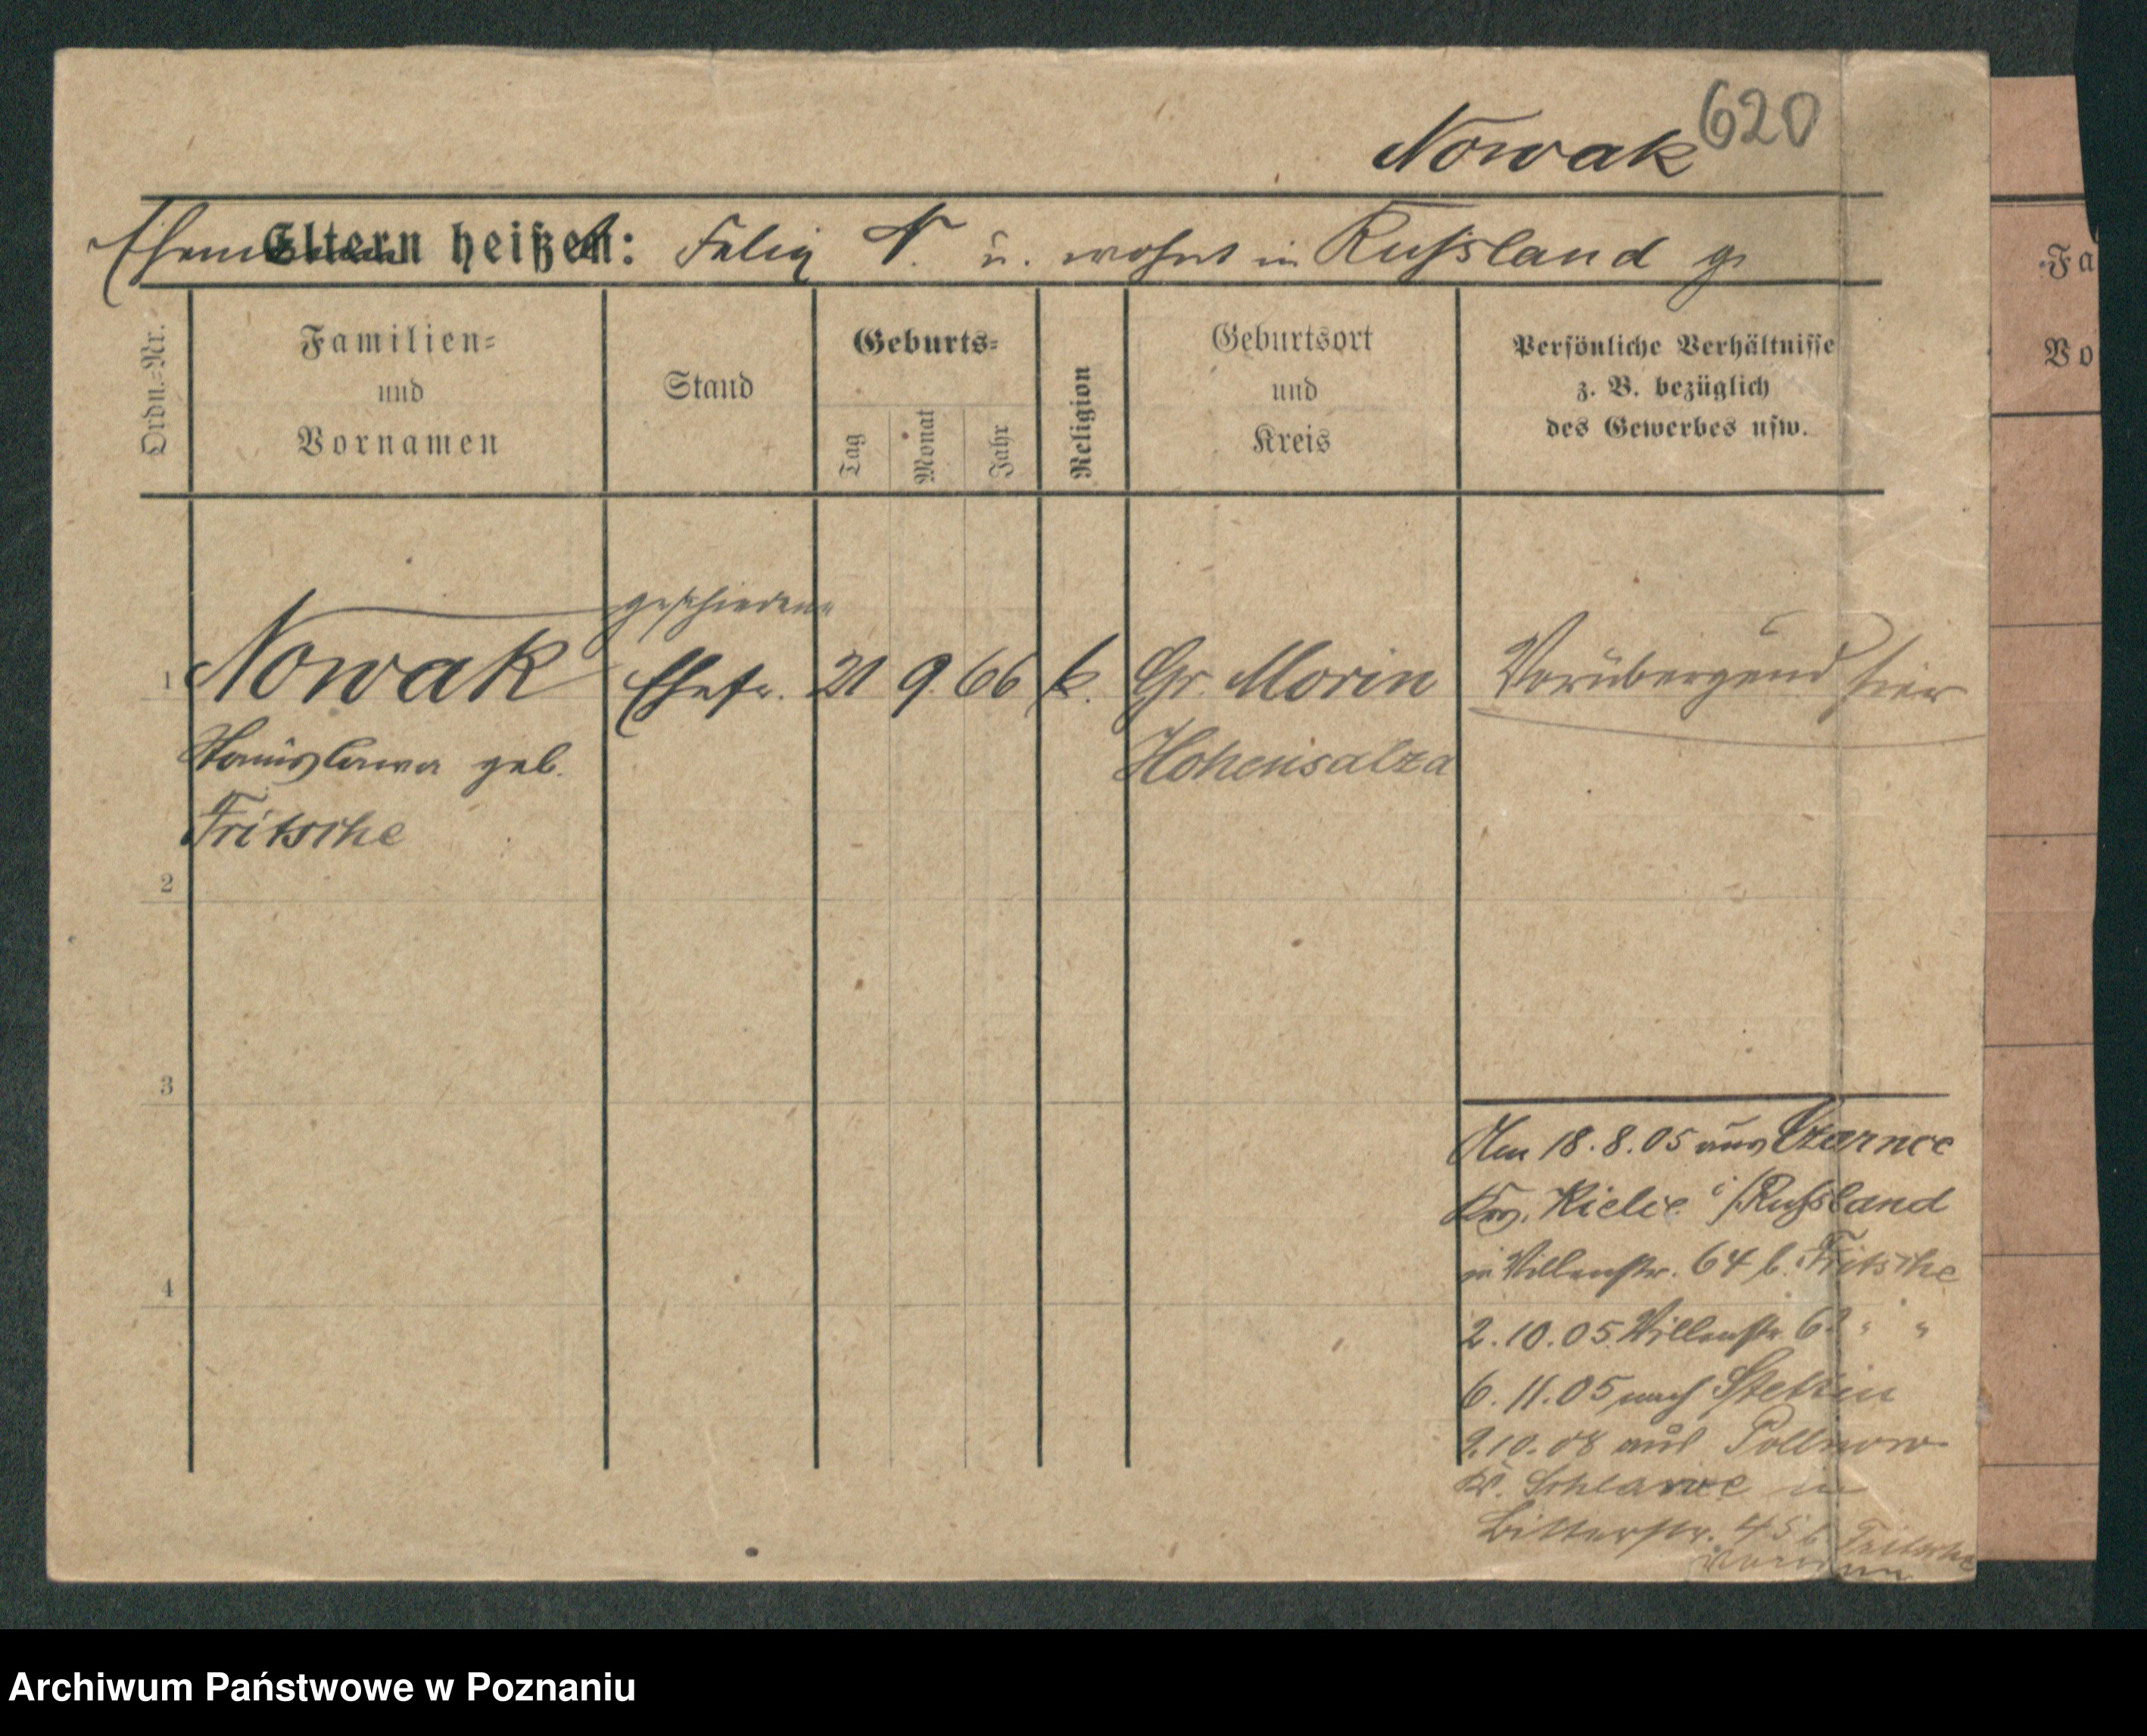 620
Nowak
Ehem Eltern heißen: Felix N. u. wohnt in Russland
Ordn.=Nr.
Familien=
und
Vornamen
Stand
Geburts=
Tag
Monat
Jahr
Religion
Geburtsort
und
Kreis
Persönliche Verhältnisse
z. B. bezüglich
des Gewerbes usw.
geschiedene
1 Nowak Ehefr. 21 9. 66 k. Gr. Morin Vorübergend hier
Stanislawa geb. Hohensalza
Fritsche
2
3
4
Am 18.8.05 aus Czarnce
Krs. Kielce i/Russland
in Villenstr. 64 b. Fritsche
2.10.05 Villenstr. 6 " "
6.11.05 nach Stettin
9.10.08 aus Pollnow
Kr. Schlawe in
Bitterstr. 45 b Fritsche
Fa
Vo
Archiwum Państwowe w Poznaniu